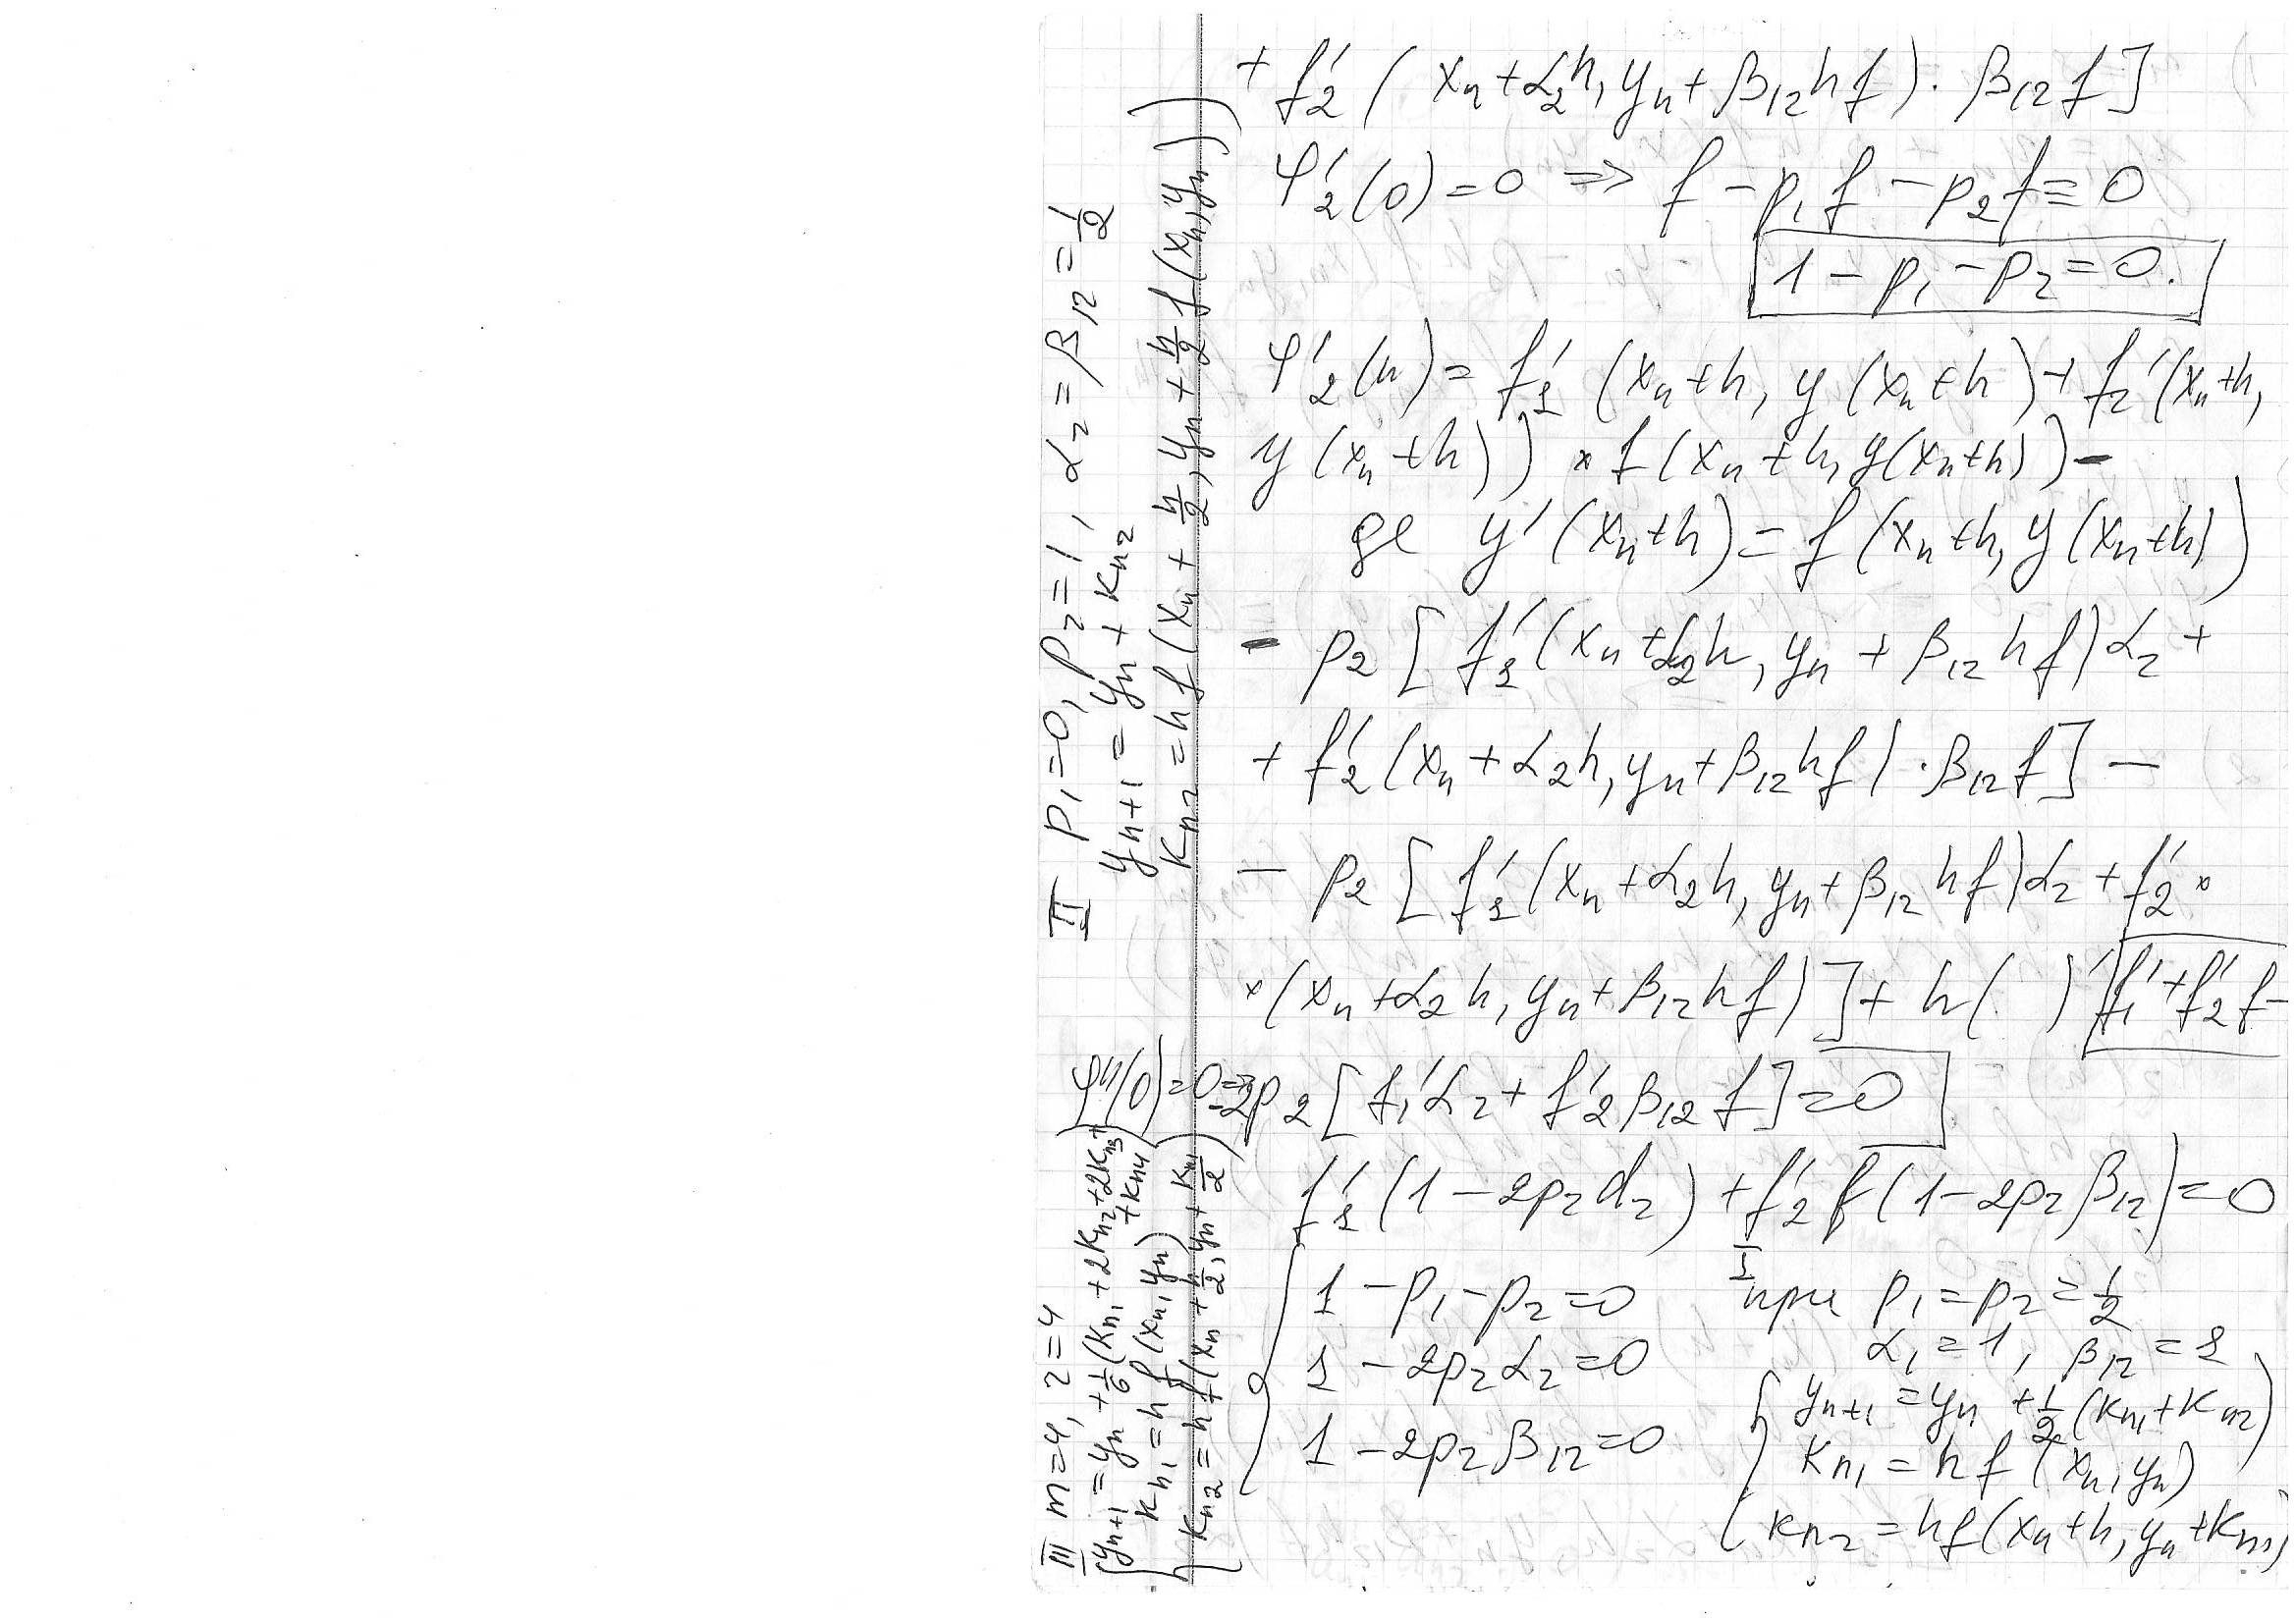 + f'₂ (xₙ+α₂h, yₙ+β₁₂hf)·β₁₂f]
φ'₂(0)=0 ⇒ f – p₁f – p₂f = 0
1 – p₁ – p₂ = 0.
φ'₂(h) = f'₁ (xₙ+h, y(xₙ+h) + f₂'(xₙ+h,
y(xₙ+h)) × f(xₙ+h, y(xₙ+h)) –
де y'(xₙ+h) = f(xₙ+h, y(xₙ+h))
– p₂ [f'₁(xₙ+α₂h, yₙ+β₁₂hf)α₂ +
+ f'₂(xₙ+α₂h, yₙ+β₁₂hf)·β₁₂f] –
– p₂ [f'₁(xₙ+α₂h, yₙ+β₁₂hf)α₂ + f'₂ ×
×(xₙ+α₂h, yₙ+β₁₂hf)] + h( )' f₁'+f'₂f–
φ''(0)=0 ⇒ -2p₂[f₁'α₂ + f'₂β₁₂f] = 0
f'₁(1 – 2p₂α₂) + f'₂f(1 – 2p₂β₁₂) = 0
{ 1 – p₁ – p₂ = 0
1 – 2p₂α₂ = 0
1 – 2p₂β₁₂ = 0
I при p₁ = p₂ = 1/2
α₁ = 1, β₁₂ = 1
{ yₙ₊₁ = yₙ + 1/2 (kₙ₁ + kₙ₂)
kₙ₁ = hf (xₙ, yₙ)
kₙ₂ = hf(xₙ+h, yₙ+kₙ₁)
II p₁=0, p₂=1, α₂ = β₁₂ = 1/2
yₙ₊₁ = yₙ + kₙ₂
kₙ₂ = hf(xₙ + h/2, yₙ + h/2 f(xₙ, yₙ))
III m=4, r=4
{ yₙ₊₁ = yₙ + 1/6 (kₙ₁ + 2kₙ₂ + 2kₙ₃ +
+ kₙ₄)
kₙ₁ = hf (xₙ, yₙ)
kₙ₂ = hf(xₙ + h/2, yₙ + kₙ₁/2)